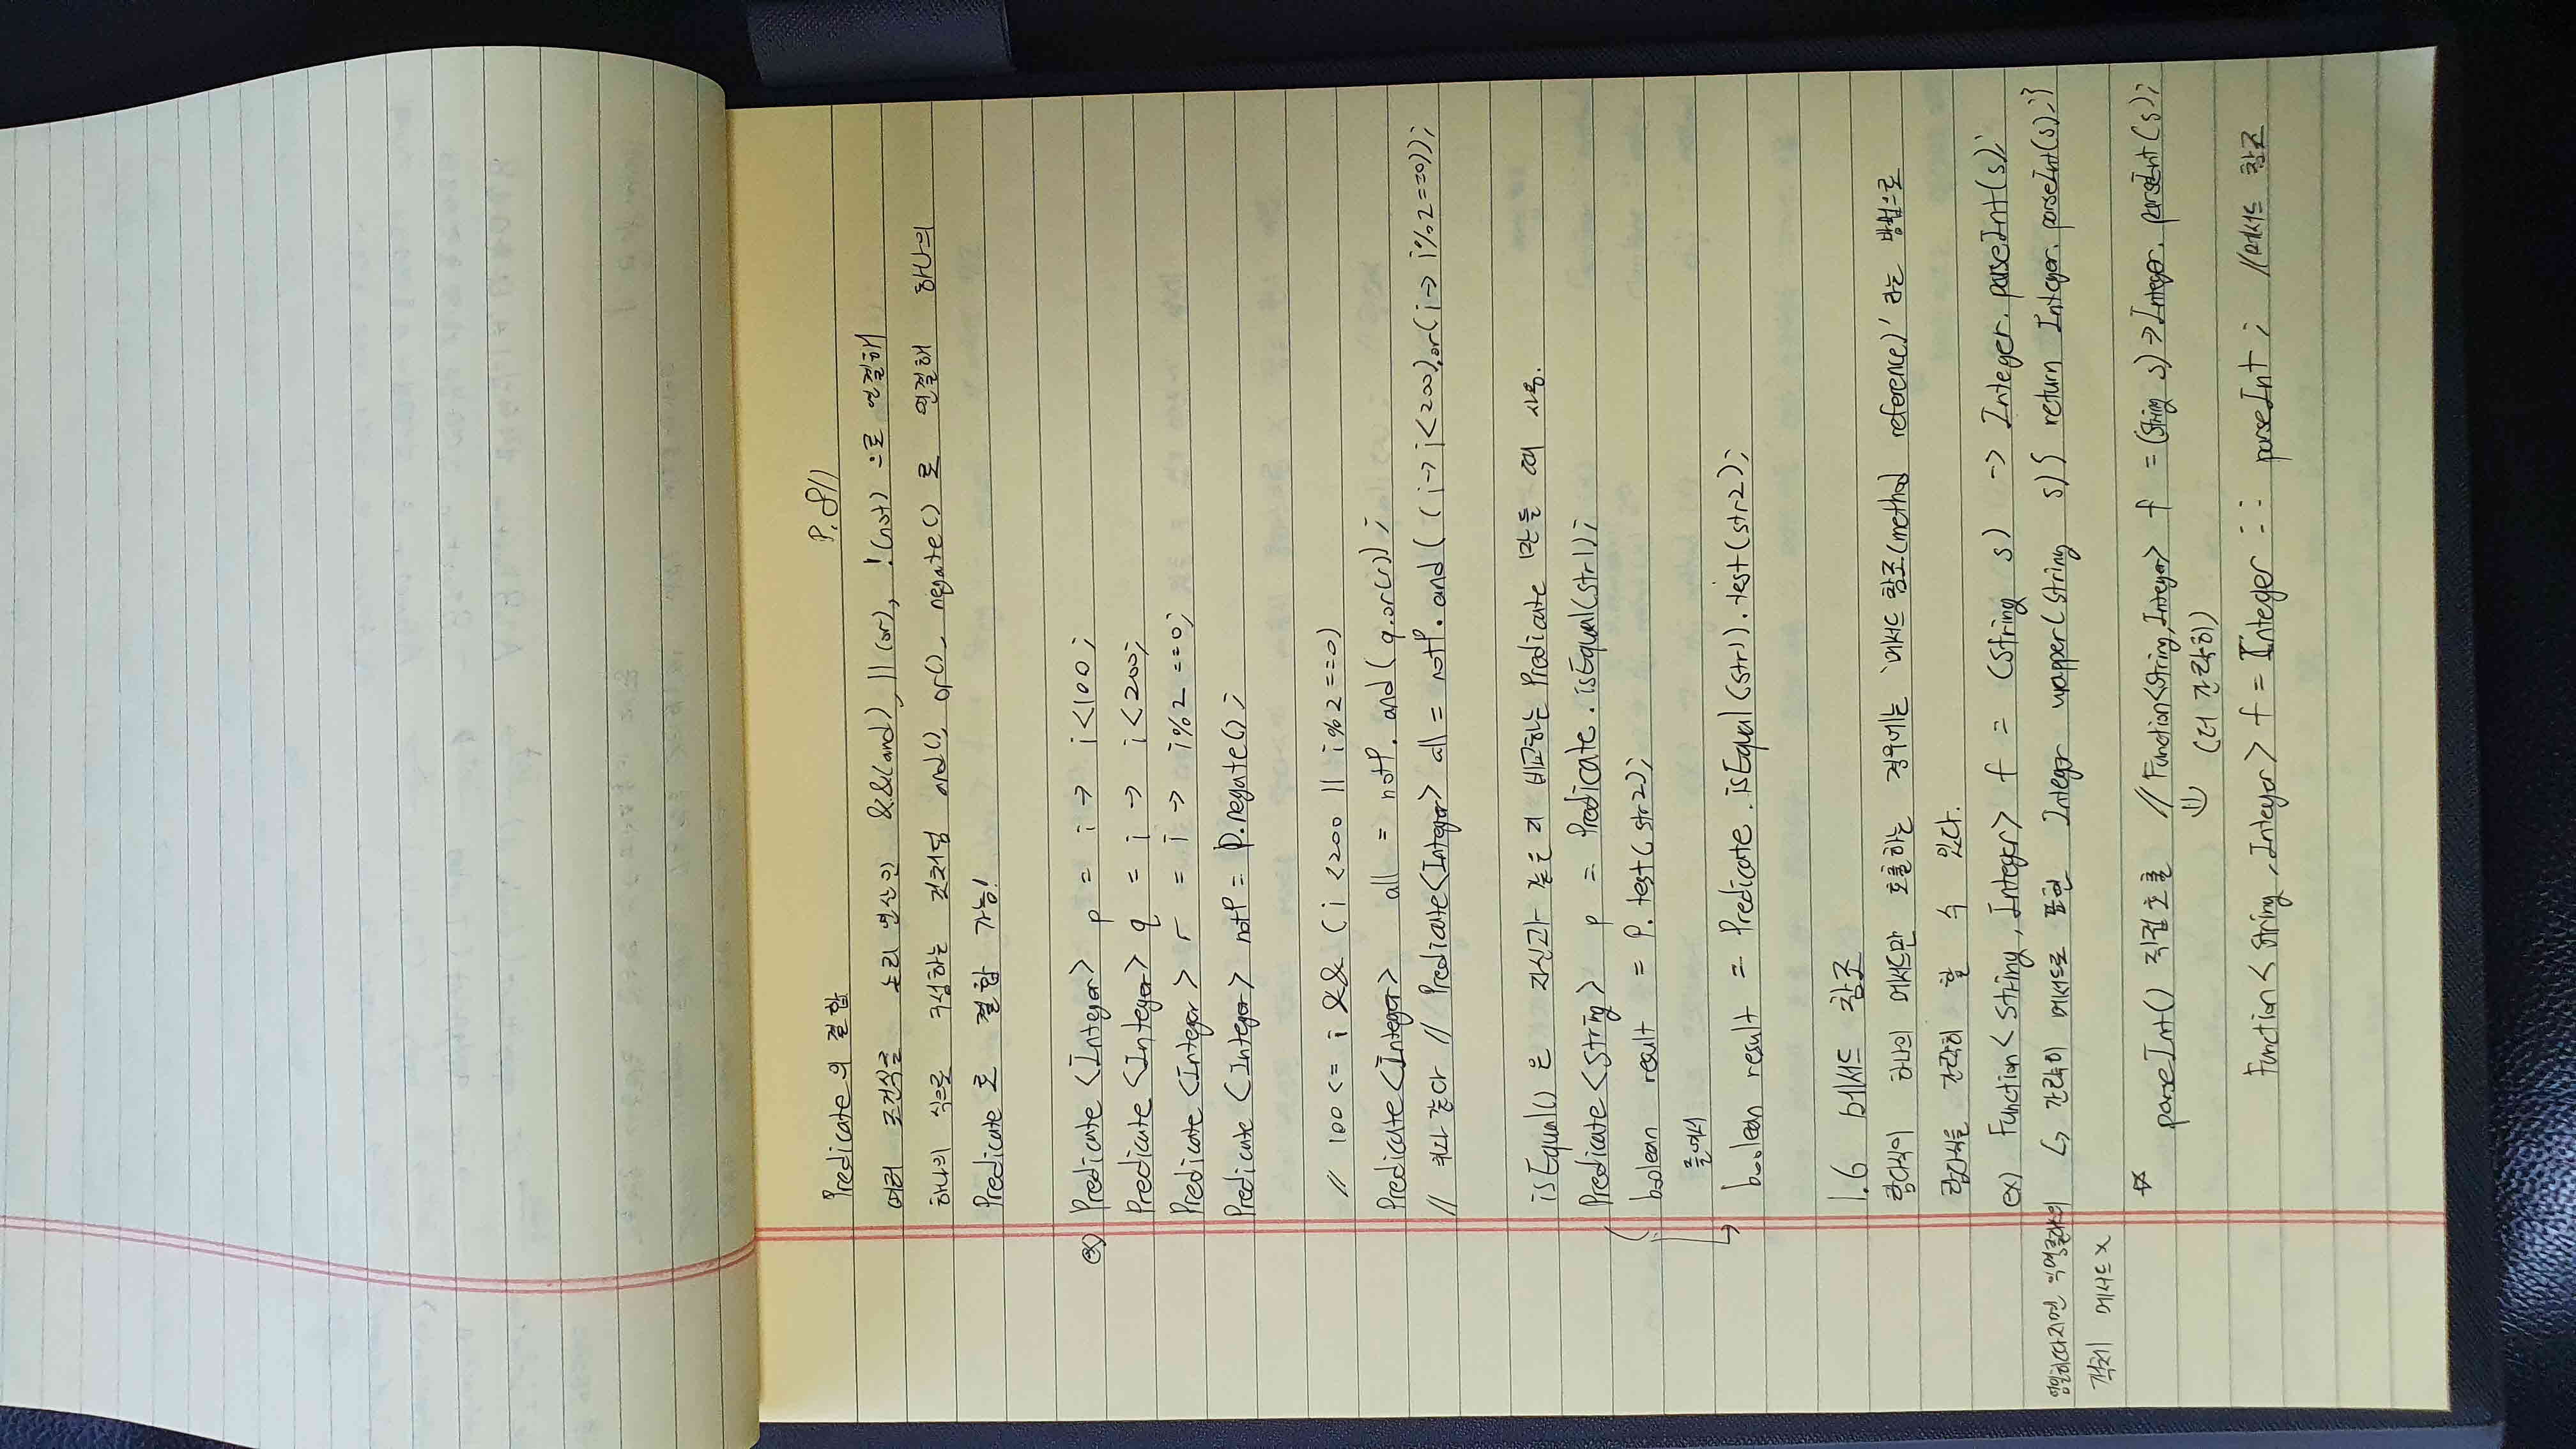 P. 811
Predicate의 결합
여러 조건식을 논리 연산인 &&(and), ||(or), !(not) 으로 연결해
하나의 식으로 구성하는 것처럼 and(), or(), negate() 로 연결해 하나의
Predicate로 결합 가능!
ex) Predicate <Integer> p = i -> i<100;
Predicate <Integer> q = i -> i<200;
Predicate <Integer> r = i -> i%2 ==0;
Predicate <Integer> notP = p.negate();
// 100 <= i && (i <200 || i%2==0)
Predicate<Integer> all = notP. and( q.or(r));
// 위와 같다 // Predicate<Integer> all = notP. and( (i-> i<200).or(i-> i%2==0));
isEqual()은 자신과 같은 지 비교하는 Predicate 만들 때 사용.
Predicate <String> p = Predicate. isEqual(str1);
boolean result = P. test( str2);
줄여서
boolean result = Predicate. isEqual (str1). test(str2);
1.6 메서드 참조
람다식이 하나의 메서드만 호출하는 경우에는 '메서드 참조(method reference)' 라는 방법으로
람다식을 간략히 할 수 있다.
ex) Function< String, Integer> f = (String s) -> Integer. parseInt(s);
엄밀히 따지면 익명클래스의 ↳ 간략히 메서드로 표현 Integer wrapper( String s) { return Integer. parseInt(s);}
객체 메서드 x
☆ parseInt() 직접 호출 // Function<String,Integer> f = (String s) -> Integer. parseInt(s);
⇓ (더 간략히)
Function< String, Integer> f = Integer :: parseInt ; //메서드 참조